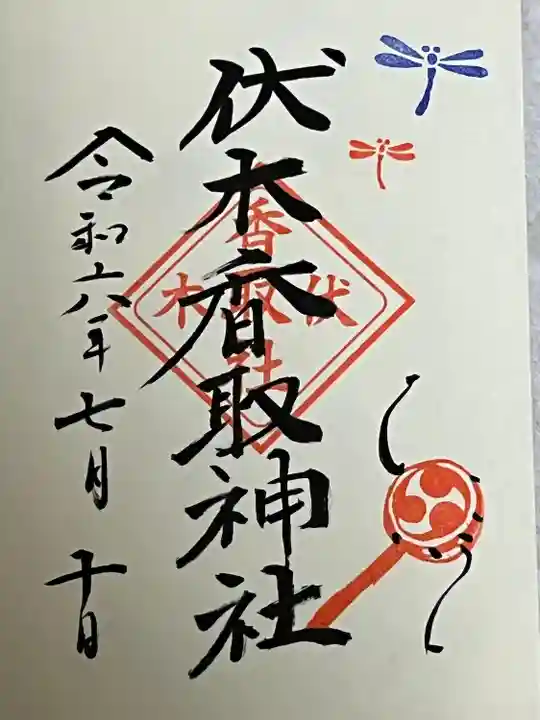 伏木香取神社
令和六年七月十日
伏
香取社
木